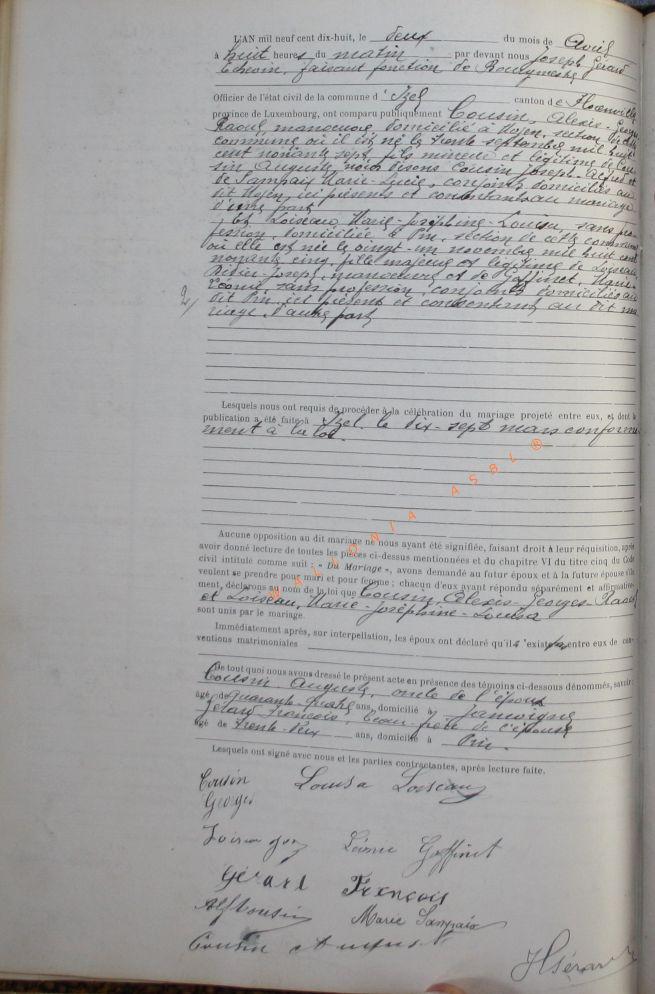 L'AN mil neuf cent dix-huit, le deux du mois de Avril
à huit heures du matin par devant nous Joseph Gérard
Echevin, faisant fonction de Bourgmestre
Officier de l'état civil de la commune d' Izel canton de Florenville
province de Luxembourg, ont comparu publiquement Cousin, Alexis-Georges
Raoul, manoeuvre, domicilié à Moyen, section de cette
commune où il est né le trente septembre mil huit
cent nonante sept, fils mineur et légitime de Cou-
sin Auguste, nous disons Cousin Joseph-Alfred et
de Sampaix Marie-Lucie, conjoints domiciliés au
dit Moyen, ici présents et consentants au mariage
d'une part
Et Loiseau Marie-Joséphine-Louisa, sans pro-
fession, domiciliée à Pin, section de cette commune
où elle est née le vingt-un novembre mil huit cent
nonante cinq, fille majeure et légitime de Loiseau
Joseph, manoeuvre et de Goffinet, Marie-
Léonie, sans profession, conjoints domiciliés au
dit Pin, ici présents et consentants au dit ma-
riage d'autre part
2/
Lesquels nous ont requis de procéder à la célébration du mariage projeté entre eux, et dont la
publication a été faite à Izel le dix-sept mars conformé-
ment à la loi.
MALIONIA ASBL ®
Aucune opposition au dit mariage ne nous ayant été signifiée, faisant droit à leur réquisition, après
avoir donné lecture de toutes les pièces ci-dessus mentionnées et du chapitre VI du titre cinq du Code
civil intitulé comme suit : « Du Mariage », avons demandé au futur époux et à la future épouse s'ils
veulent se prendre pour mari et pour femme ; chacun d'eux ayant répondu séparément et affirmative-
ment, déclarons au nom de la loi que Cousin, Alexis-Georges-Raoul
et Loiseau, Marie-Joséphine-Louisa
sont unis par le mariage.
Immédiatement après, sur interpellation, les époux ont déclaré qu'il existe entre eux de con-
ventions matrimoniales
De tout quoi nous avons dressé le présent acte en présence des témoins ci-dessous dénommés, savoir :
Cousin Auguste, oncle de l'époux
âgé de quarante-quatre ans, domicilié à Jamoigne
Gérard François, beau-frère de l'épouse
âgé de trente-deux ans, domicilié à Pin.
Lesquels ont signé avec nous et les parties contractantes, après lecture faite.
Cousin Louisa Loiseau
Georges
Léonie Goffinet
Gérard François
Alf Cousin Marie Sampaix
Cousin August